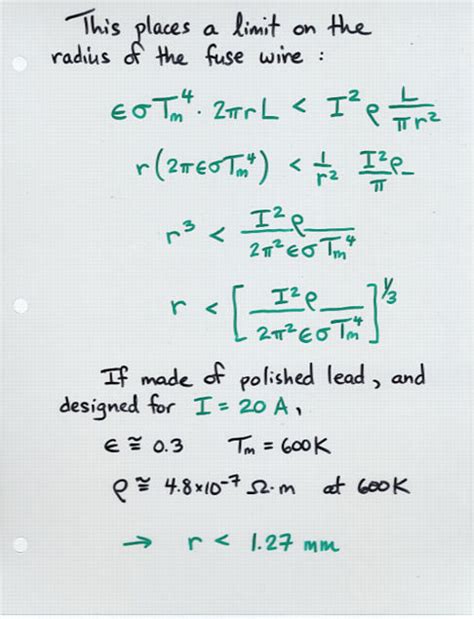 This places a limit on the
radius of the fuse wire :
εσTm⁴ · 2πrL < I²ρ L/πr²
r(2πεσTm⁴) < 1/r² I²ρ/π
r³ < I²ρ/2π²εσTm⁴
r < [I²ρ/2π²εσTm⁴]^1/3
If made of polished lead, and
designed for I = 20 A,
ε ≅ 0.3 Tm = 600K
ρ ≅ 4.8×10⁻⁷ Ω·m at 600K
→ r < 1.27 mm